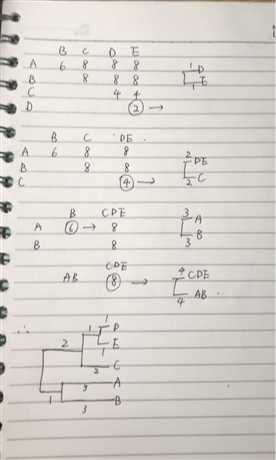 B C D E
A 6 8 8 8
B 8 8 8
C 4 4
D 2 →
1 D
1 E
B C DE
A 6 8 8
B 8 8
C 4 →
2 DE
2 C
B CDE
A 6 → 8
B 8
3 A
3 B
CDE
AB 8 →
4 CDE
4 AB
∴
1 D
1
1 E
2
2 C
3 A
1
3 B